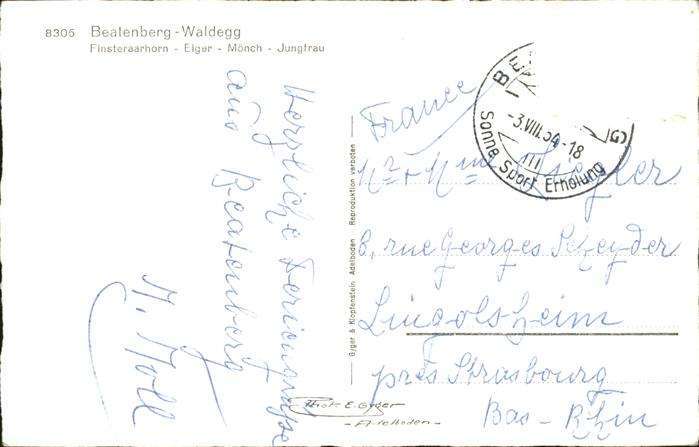 8305 Beatenberg - Waldegg
Finsteraarhorn - Eiger - Mönch - Jungfrau
Herzliche Feriengrüsse
aus Beatenberg
M. Moll
Gyger & Klopfenstein Adelboden Reproduktion verboten
Photo E. Gyger
- Adelboden -
-3.VIII.54-18
Sonne Sport Erholung
France
Mr + Mme Ziegler
8, rue Georges
Lingolsheim
près Strasbourg
Bas-Rhin